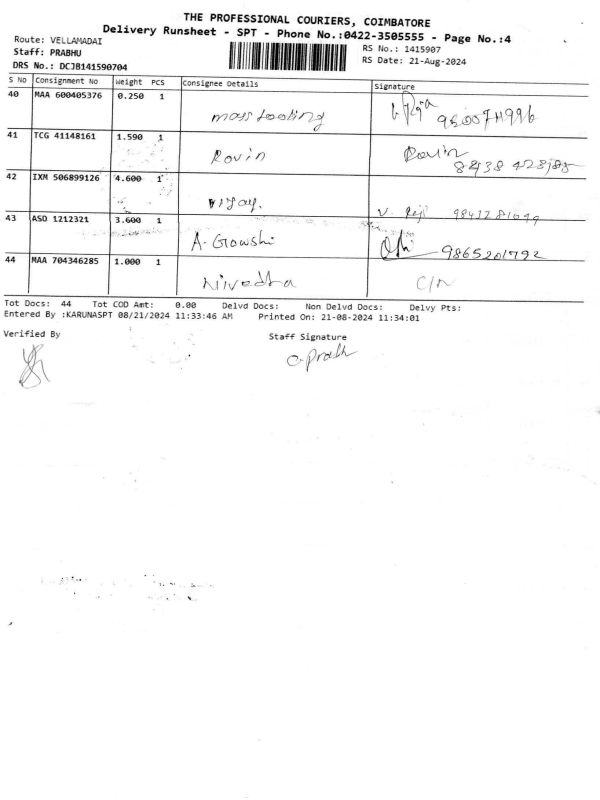 THE PROFESSIONAL COURIERS, COIMBATORE
Delivery Runsheet - SPT - Phone No.:0422-3505555 - Page No.:4
Route: VELLAMADAI
RS No.: 1415907
Staff: PRABHU
RS Date: 21-Aug-2024
DRS No.: DCJB141590704
S No Consignment No Weight PCS Consignee Details Signature
40 MAA 600405376 0.250 1
41 TCG 41148161 1.590 1 Rovin Rovin
42 IXM 506899126 4.600 1 Vijay.
43 ASD 1212321 3.600 1 A. Gowshi 9865201792
44 MAA 704346285 1.000 1 Nivedha
Tot Docs: 44 Tot COD Amt: 0.00 Delvd Docs: Non Delvd Docs: Delvy Pts:
Entered By :KARUNASPT 08/21/2024 11:33:46 AM Printed On: 21-08-2024 11:34:01
Verified By Staff Signature